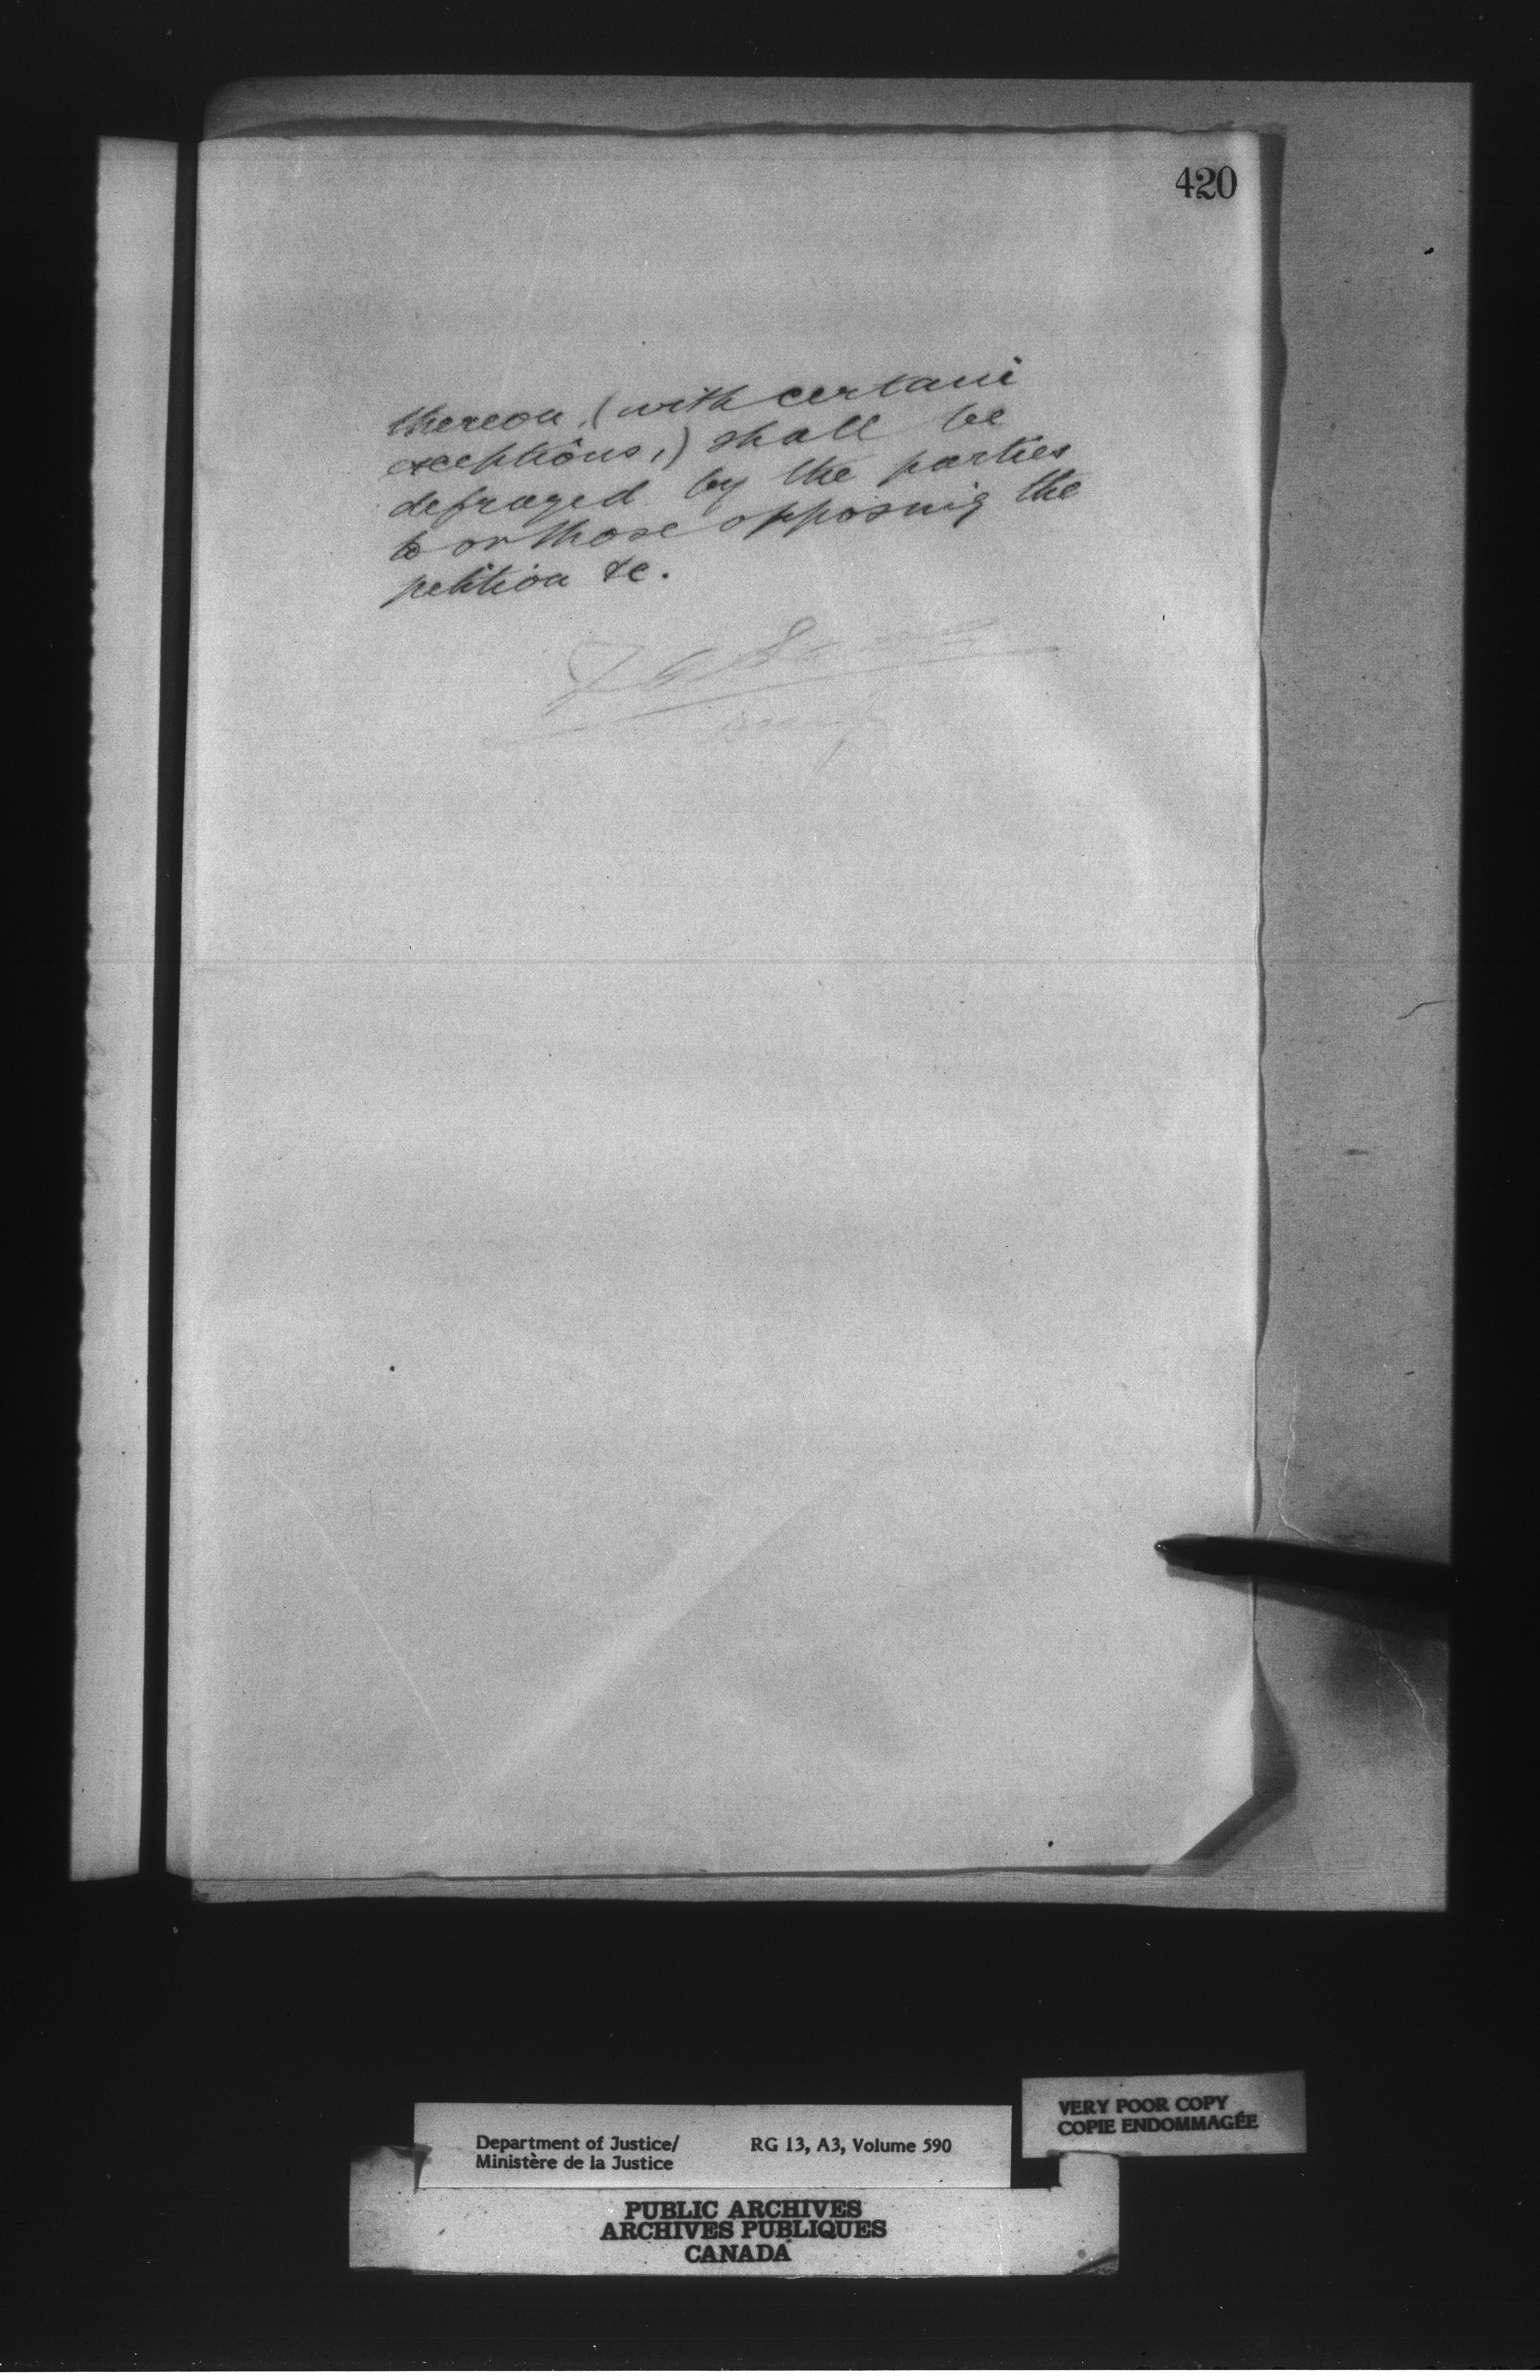 420
thereon, (with certain
exceptions,) shall be
defrayed by the parties
to or those opposing the
petition &c.
Department of Justice/
Ministère de la Justice
RG 13, A3, Volume 590
VERY POOR COPY
COPIE ENDOMMAGÉE
PUBLIC ARCHIVES
ARCHIVES PUBLIQUES
CANADA